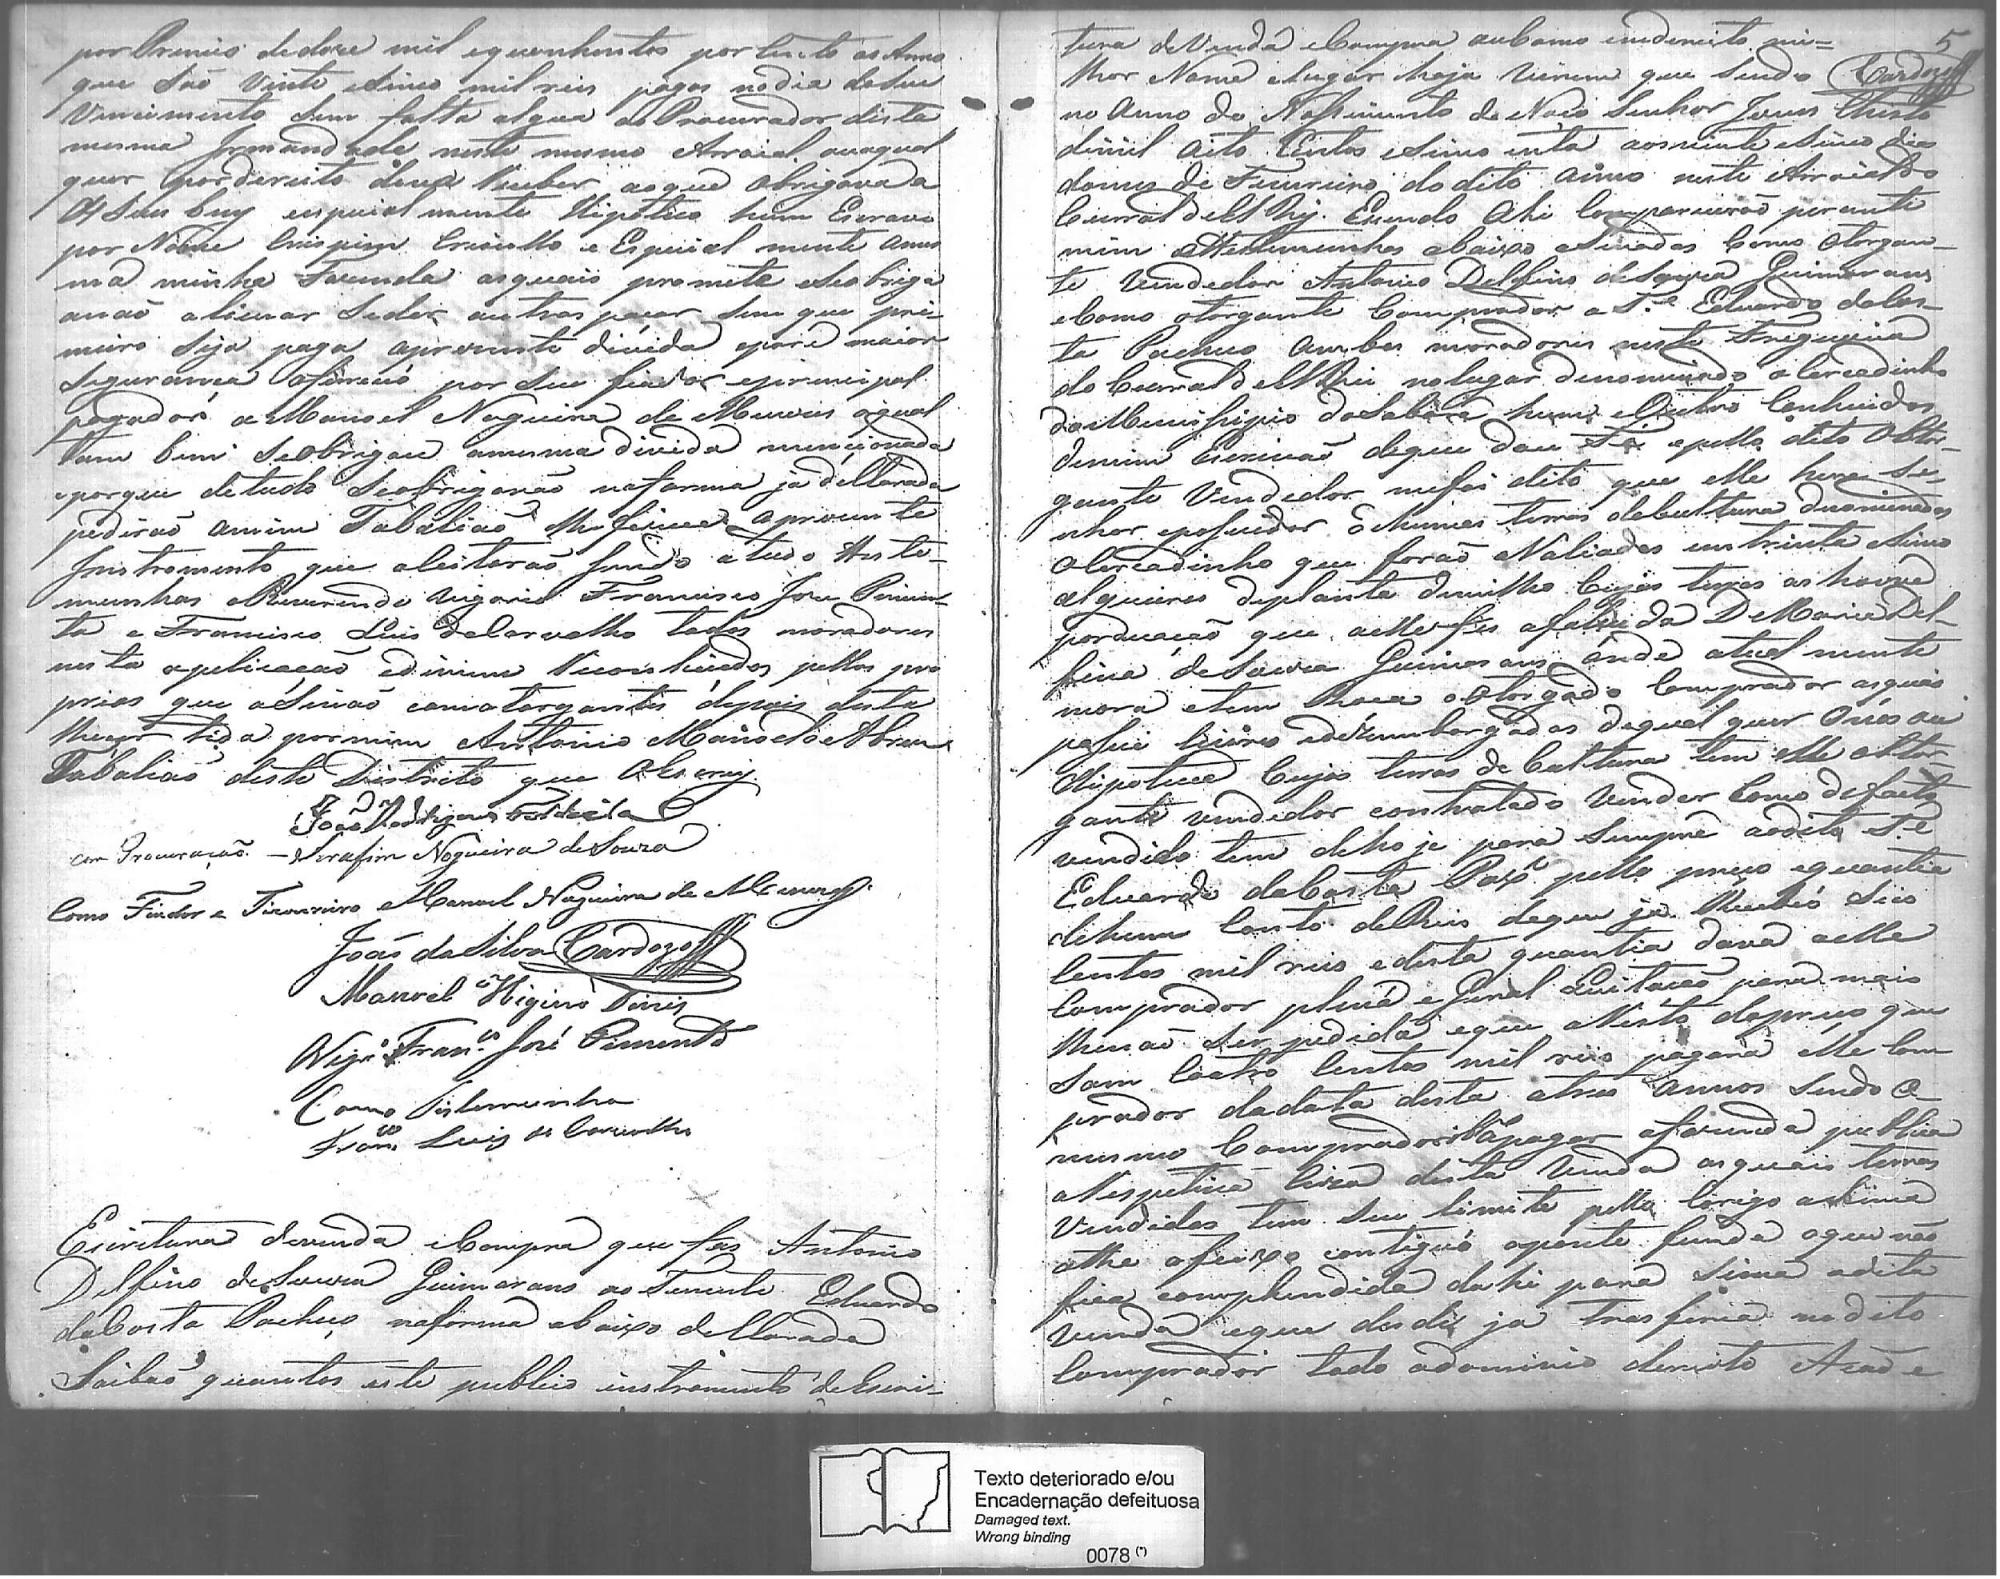 por Premio de doze mil e quinhentos por cento ao Anno
que São Vinte e sinco mil reis pagos no dia do seu
Vencimento sem falta algua ao Procurador desta
mesma Irmandade neste mesmo Arraial ou a qual
quer por dereito deva Receber ao que obrigava a
os seus bens especial mente Hipoteca hum Escravo
por Nome Crispim Crioullo e Especial mente a mes
ma minha Fazenda as quais promete e se obriga
a não alienar se der outros pacar sem que pri-
meiro seja paga a prezente divida e para maior
Siguransa ofereceo por seu fiador e principal
pagador a Manoel Nogueira de o qual
tam bem se obrigou a mesma divida mencionada
e porque de tudo se obrigarão na forma já decllarada
pedirão a mim Tabalião lhe fizece a prezente
Instromento que aceitarão sendo a tudo teste-
munhas o Reverendo Vigario Francisco Joze Pimen-
ta e Francisco Luis de Carvalho todos moradores
nesta aplicação e de mim Reconhecidos pellos pro
prios que asinão com otorgantes depois desta
lida por mim Antonio Mano de Abreu
Tabaliao deste Distrito que o Escrevy
João Rodrigues
com Procuração. – Serafim Nogueira de Souza
Como Fiador e Tizoureiro Manoel Nogueira de
João da Silva Cardozo
Manoel Higino Diniz
Vigr.º Fran.co José Pimenta
Como Testemunha
Fran.co Luis de Carvalho
Escritura de venda e Compra que fas Antonio
Delfino de Souza Guimarans ao Tenente Eduardo
da Costa Pacheco na forma abaixo decllarada
Saibão quantos este publico instromento de Escri-
5
tura de Venda e Compra ou como em dereito mi-
lhor Nome e lugar haja virem que sendo Cardozo
no Anno do Nascimento de Noso Senhor Jezus Christo
de mil oito Centos e sinco enta aos vinte e sinco dias
do mes de Fevereiro do dito Anno neste Arraial do
Curral dell Rey. E sendo ahi Comparecerão perante
mim e testemunhas abaixo asinadas Como otorgan-
te Vendedor Antonio Delfino de Souza Guimarans
e Como otorgante Comprador o T.e Eduardo da Cos-
ta Pacheco ambos moradores neste Freguezia
do Curral d ell Rei no lugar denominado o Cercadinho
do Municipio do Sabara hum e Outro Conhecidos
de mim Escrivão de que dou Fé e pello dito Otor-
gante Vendedor me foi dito que elle hera Se-
nhor e posuidor de humas terras de Cultura denominados
o Cercadinho que forão avaliadas em trinta e sinco
alqueires de planta de milho Cujas terras as houve
por doação que a elle fes a falecida D Maria Del-
fina de Souza Guimarans onde atual mente
mora e tem o otorgado Comprador as quais
posui livres e dezembargadas de qual quer Onus ou
Hipoteca Cujas terras de Cultura tem elle otor-
gante vendedor contratado Vender Como de facto
vendido tem de hoje para Sempre ao dito T.e
Eduardo da Costa Pax.co pello preço e quantia
de hum Conto de Reis de que já Recebeo Seis
centos mil reis e desta quantia dava a elle
Comprador plena e Geral Quitacão para mais
lhe não ser pedida e que o Resto do preço que
sam Coatro centos mil reis pagará elle Com
prador da data desta a tres annos sendo o
mesmo Comprador a pagar a fazenda publica
a Respetiva Ciza desta Venda as quais terras
Vendidas tem seu limite pello Corigo asima
athe contigua a ponte funda o que não
fica complendido da hi para sima a dita
venda e que desde ja trasferia no dito
Comprador todo o dominio dereito Acão e
Texto deteriorado e/ou
Encadernação defeituosa
Damaged text.
Wrong binding
0078 (*)